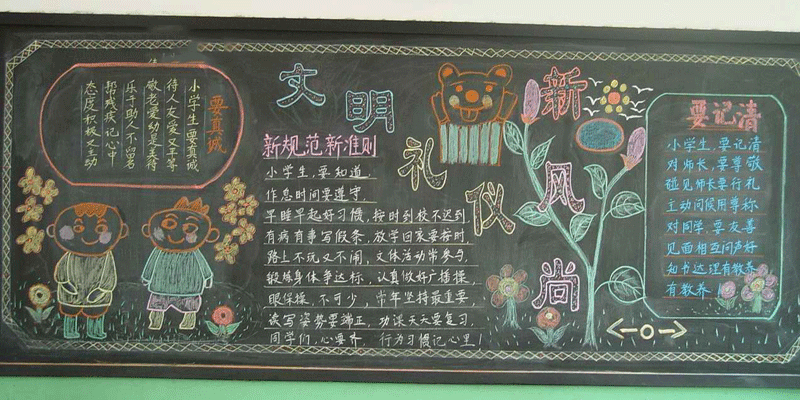 文明礼仪新风尚
要真诚
小学生，要真诚
待人友爱又平等
敬老爱幼是美德
乐于助人不留名
帮残疾记心中
态度积极又主动
新规范新准则
小学生，要知道，
作息时间要遵守，
早睡早起好习惯，按时到校不迟到，
有病有事写假条，放学回家要按时，
路上不玩又不闹，文体活动常参与，
锻炼身体争达标，认真做好广播操，
眼保操，不可少，常年坚持最重要，
读写姿势要端正，功课天天要复习，
同学们，心要齐，行为习惯记心里！
要记清
小学生，要记清
对师长，要尊敬
碰见师长要行礼
主动问候用尊称
对同学，要友善
见面相互问声好
知书达理有教养
有教养